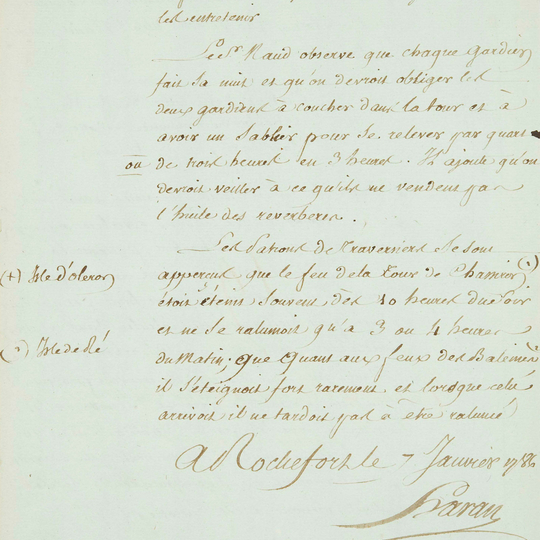 les entretenir
Le Sr. Naud observe que chaque gardien
fait sa nuit et qu'on devroit obliger les
deux gardiens à coucher dans la tour et à
avoir un sablier pour se relever par quart
ou de trois heures en 3 heures. Il ajoute qu'on
devroit veiller à ce qu'ils ne vendent pas
l'huile des reverberes.
Les Patrons de traversiers se sont
(+) Isle d'oleron apperçus que le feu de la Tour de Chassiron (+)
étoit éteint souvent dès 10 heures du soir
et ne se ralumoit qu'a 3 ou 4 heures
(") Isle de Ré du Matin; que quant aux feux des Baleines (")
il s'éteignoit fort rarement et lorsque cela
arrivoit il ne tardoit pas à être ralumé
A Rochefort le 7 Janvier 178